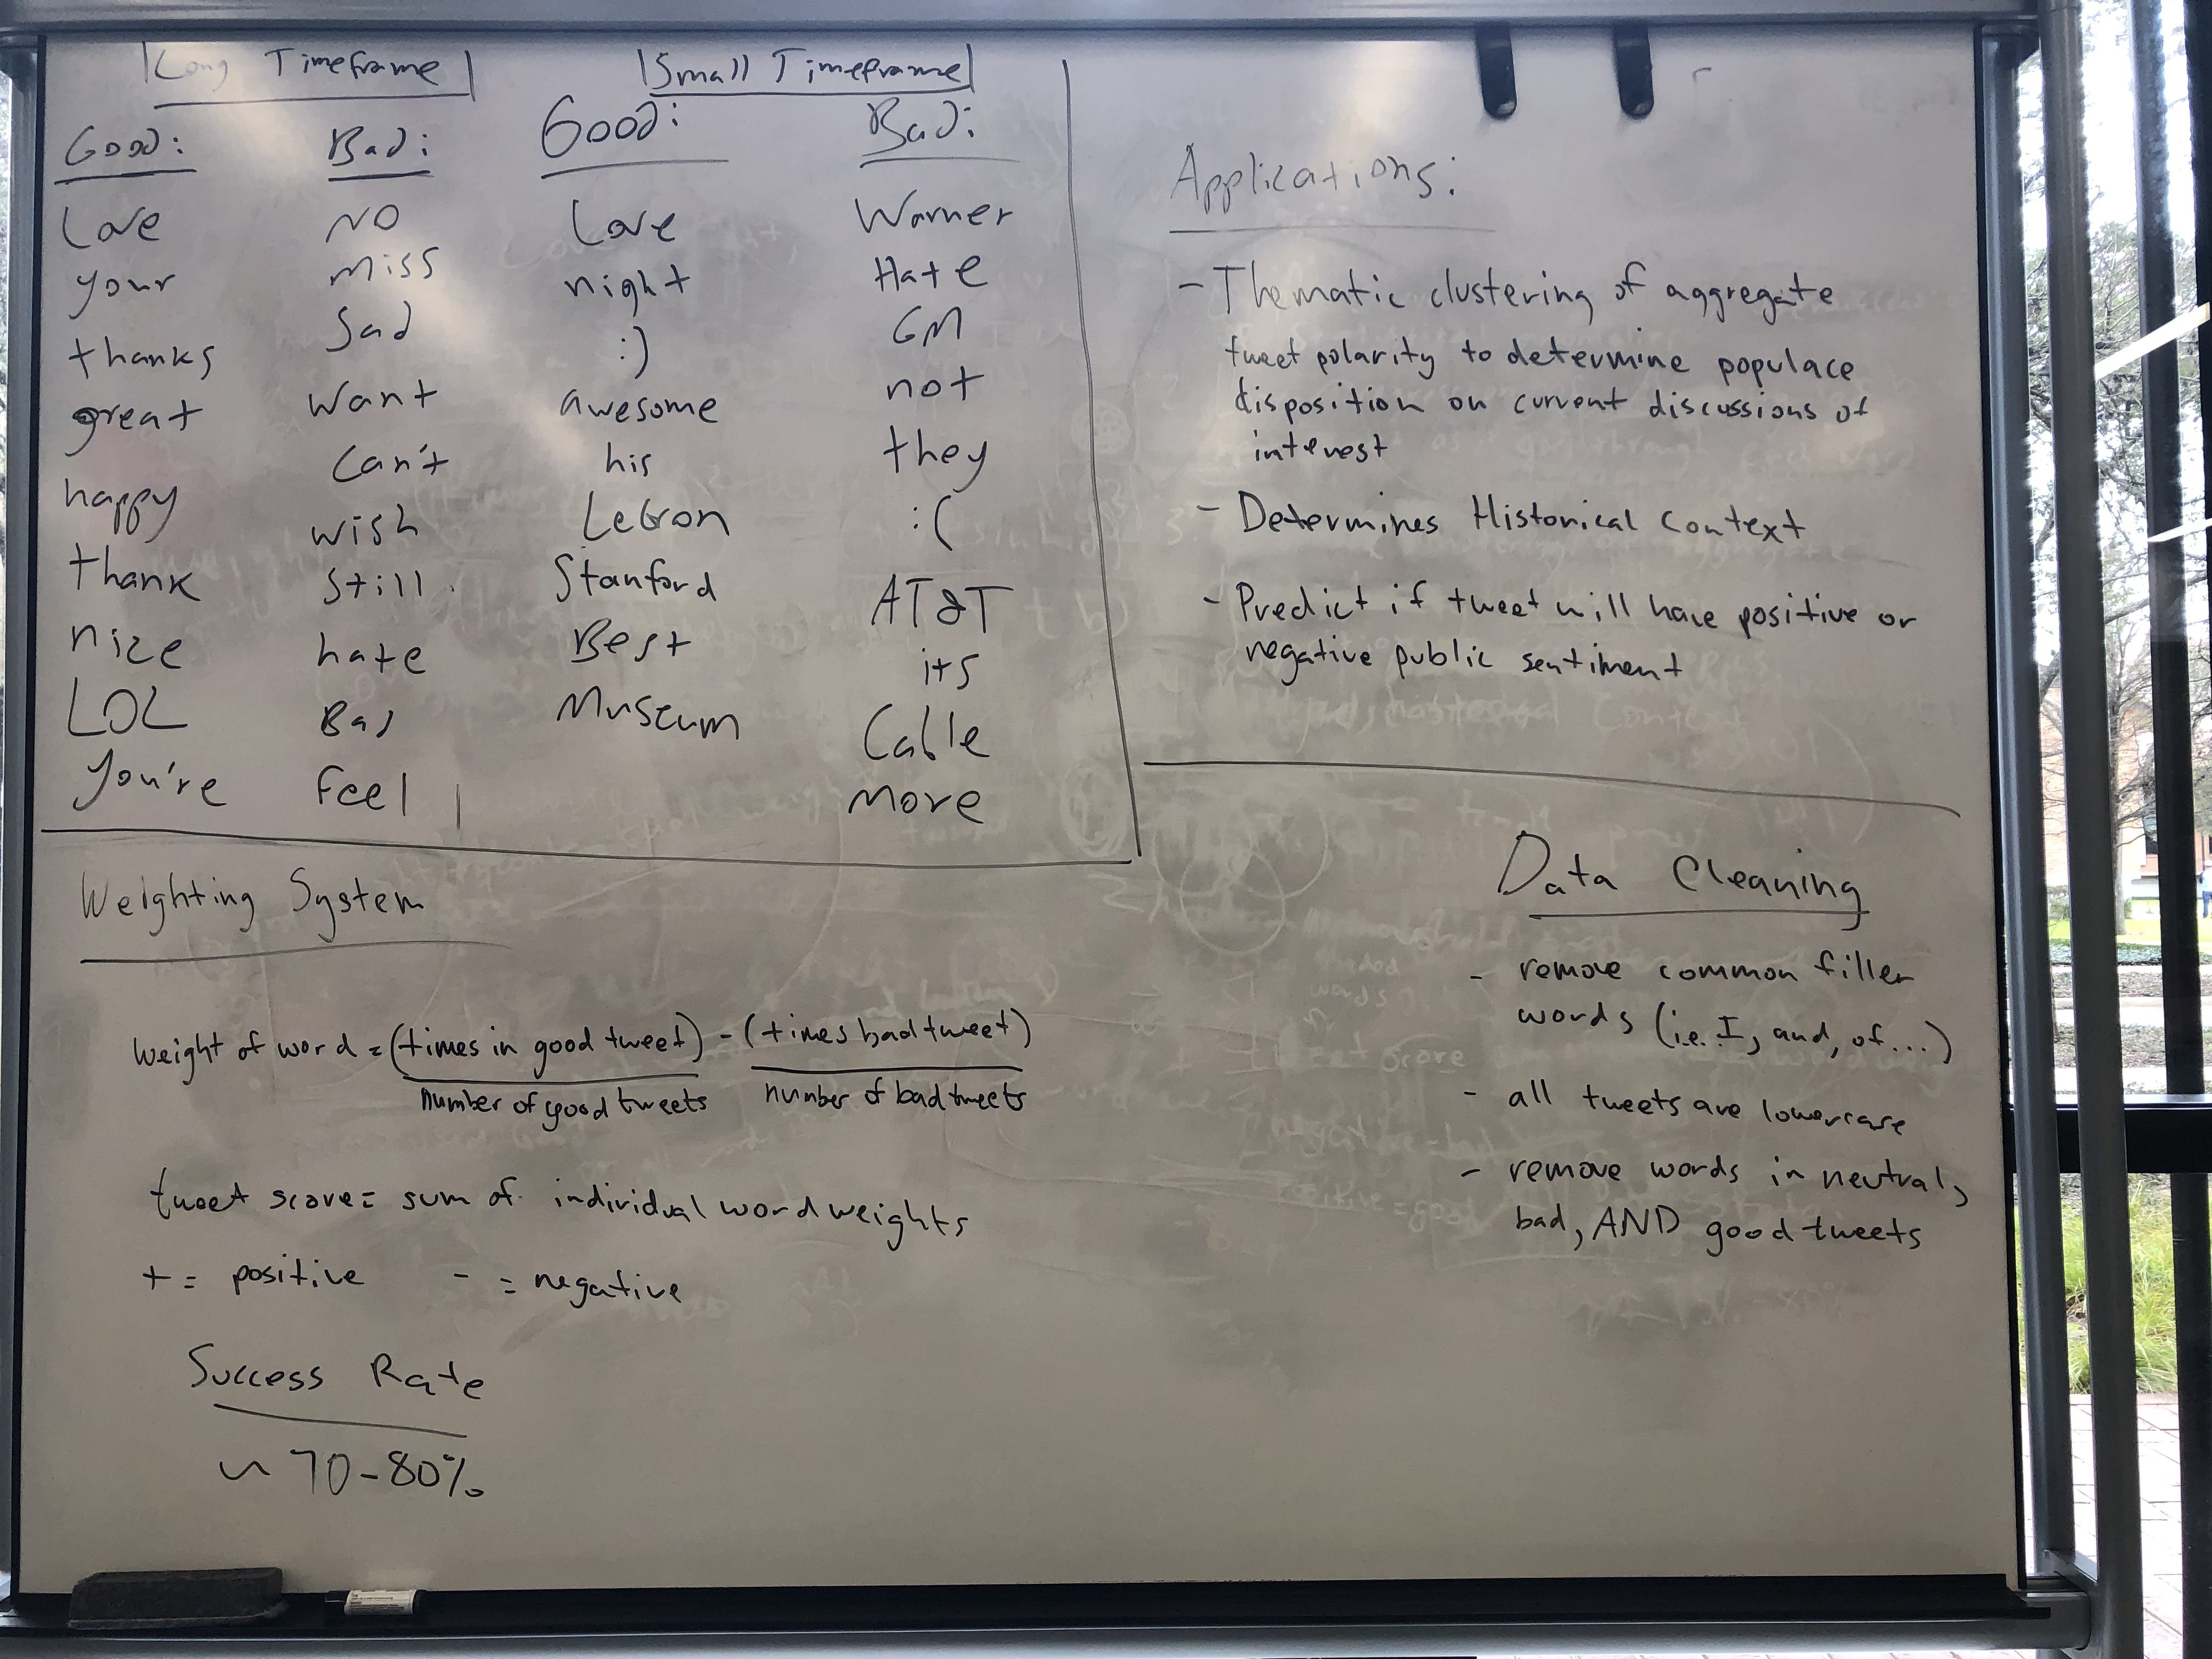 Long Timeframe
Good:
Love
your
thanks
great
happy
thank
nice
LOL
you're
Bad:
NO
Miss
Sad
Want
Can't
wish
Still
hate
Bad
Feel
Small Timeframe
Good:
Love
night
:)
awesome
his
LeBron
Stanford
Best
Museum
Bad:
Warner
Hate
GM
not
they
:(
AT&T
its
Cable
More
Applications:
- Thematic clustering of aggregate
tweet polarity to determine populace
disposition on current discussions of
interest
- Determines Historical Context
- Predict if tweet will have positive or
negative public sentiment
Weighting System
Weight of word = (times in good tweet) - (times bad tweet)
number of good tweets number of bad tweets
tweet score = sum of individual word weights
+ = positive - = negative
Success Rate
~ 70-80%
Data Cleaning
- remove common filler
words (i.e. I, and, of...)
- all tweets are lowercase
- remove words in neutral,
bad, AND good tweets